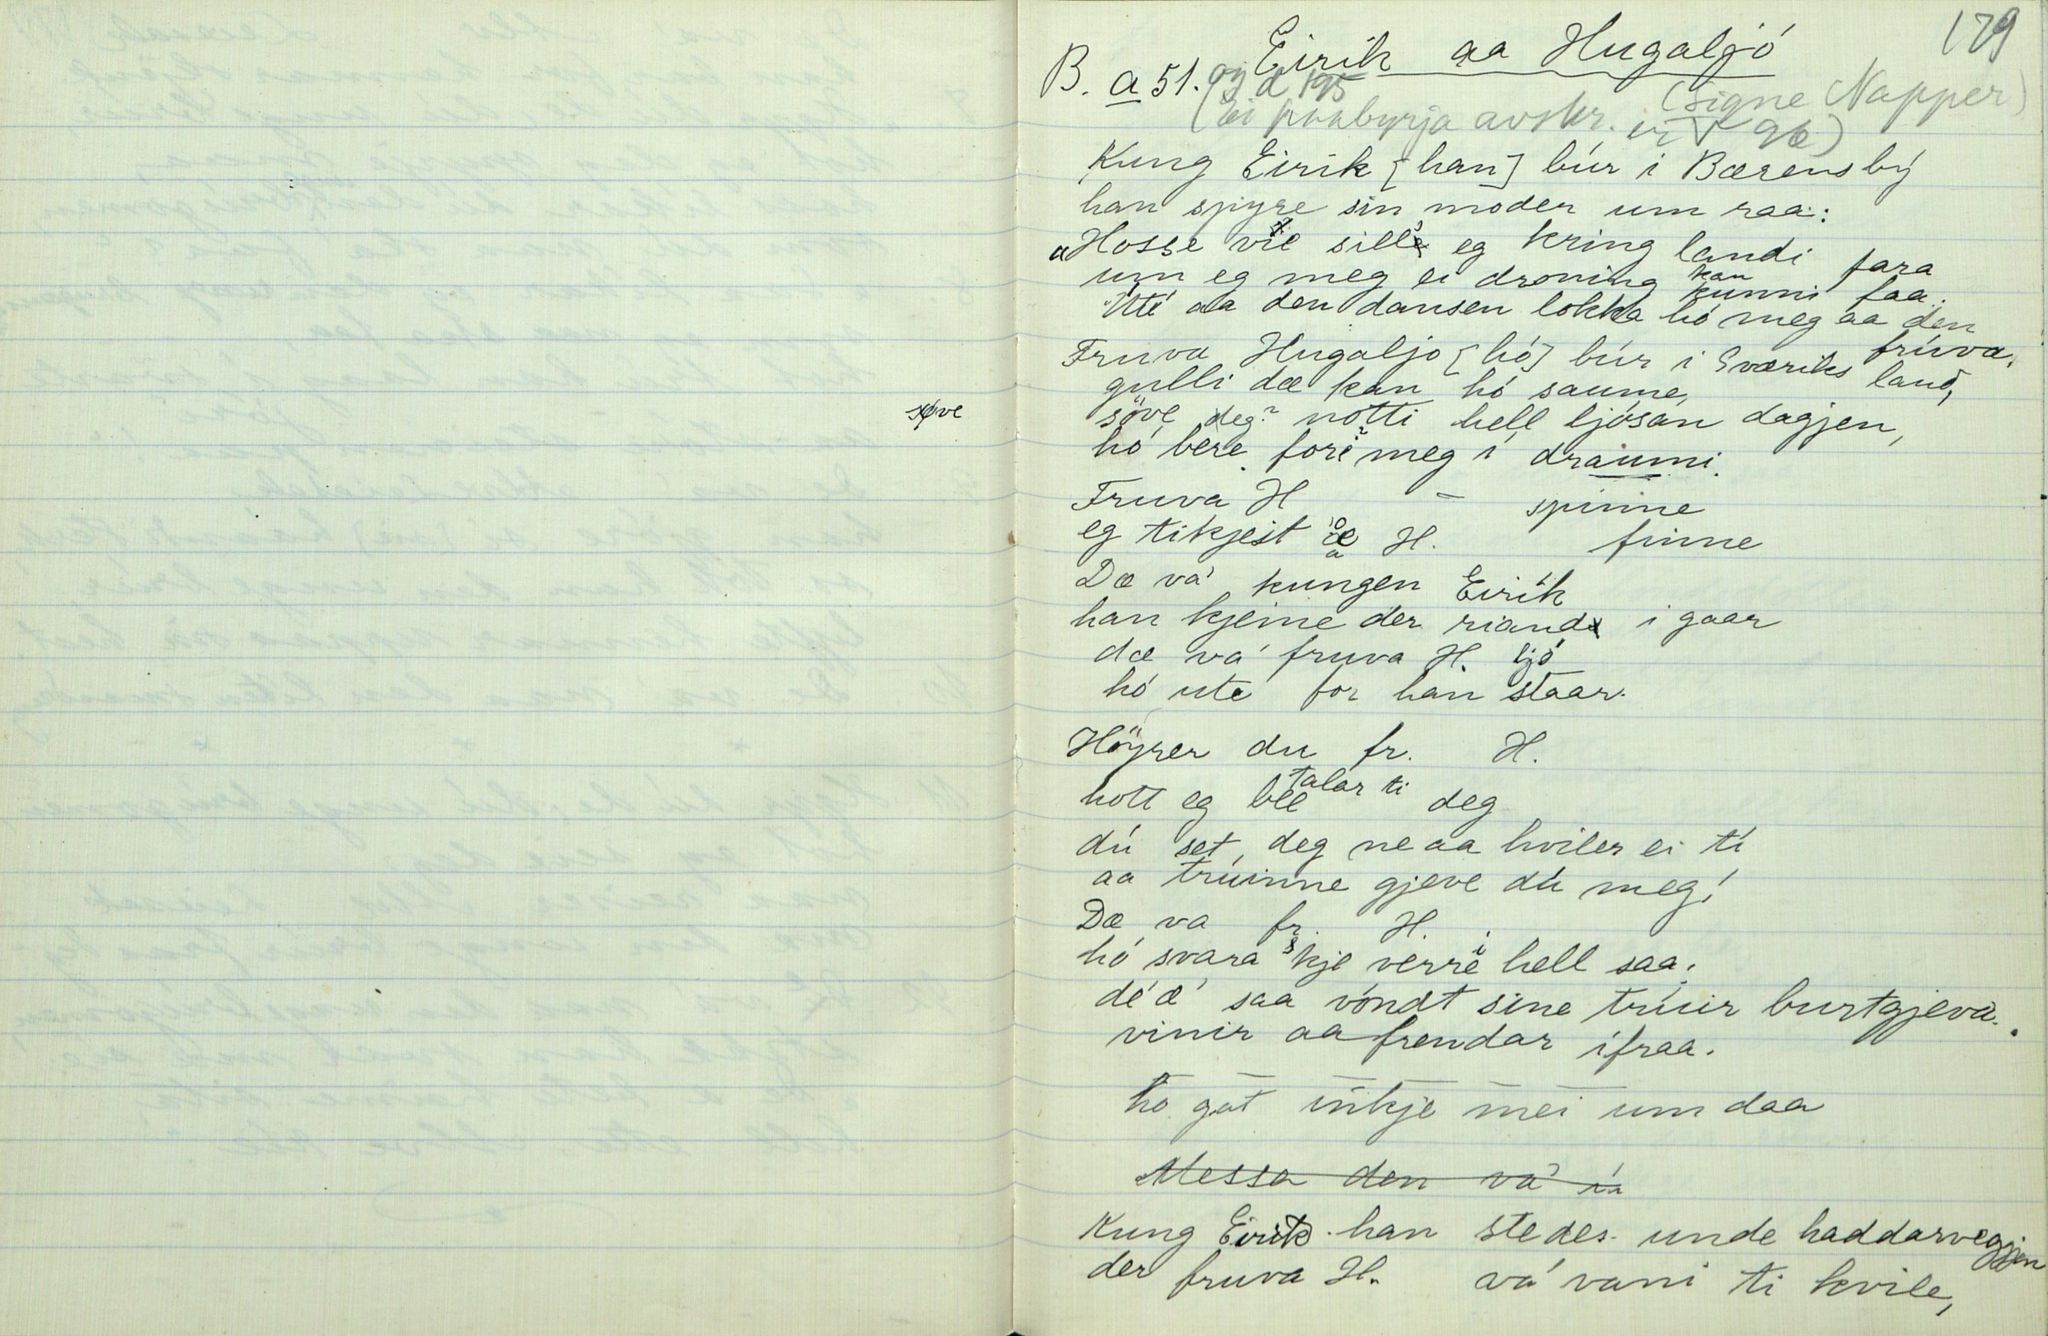 179
Eirik aa Hugaljó
B. a 51. og d 195
(Signe Napper)
(Ei paabyrja avskr. er V 96)
Kung Eirik [han] búr i Bærensbý
han spyre sin moder um raa:
Hosse vil sill eg kring landi fara
um eg meg ei droning kunni faa. kan
Uté aa den dansen lokka hó meg aa den
frúva.
Fruva Hugaljo [hó] búr i Sværiks land,
gulli dæ kan hó saume,
söve deg? notti hell ljósan dagjen,
søve
hó bere fori meg i draumi.
Fruva H – spinne
eg tikjest æ H. finne
Dæ vá kungen Eirik
han kjeme der riand i gaar
dæ vá fruva H. ljó
hó ute for han staar.
Höyrer du fr. H.
hott eg vil talar ti deg
dú set deg ne aa hviler ei ti
aa trúinne gjeve dú meg!
Dæ va fr. H.
hó svara kje verre hell saa:
dé æ saa vóndt sine trúir burtgjeva.
vinir aa frendar ifraa.
ho gat inkje mei um daa
Messa den vá
Kung Eirik han stedes unde haddarveggjen
der fruva H. vá vani ti kvile,